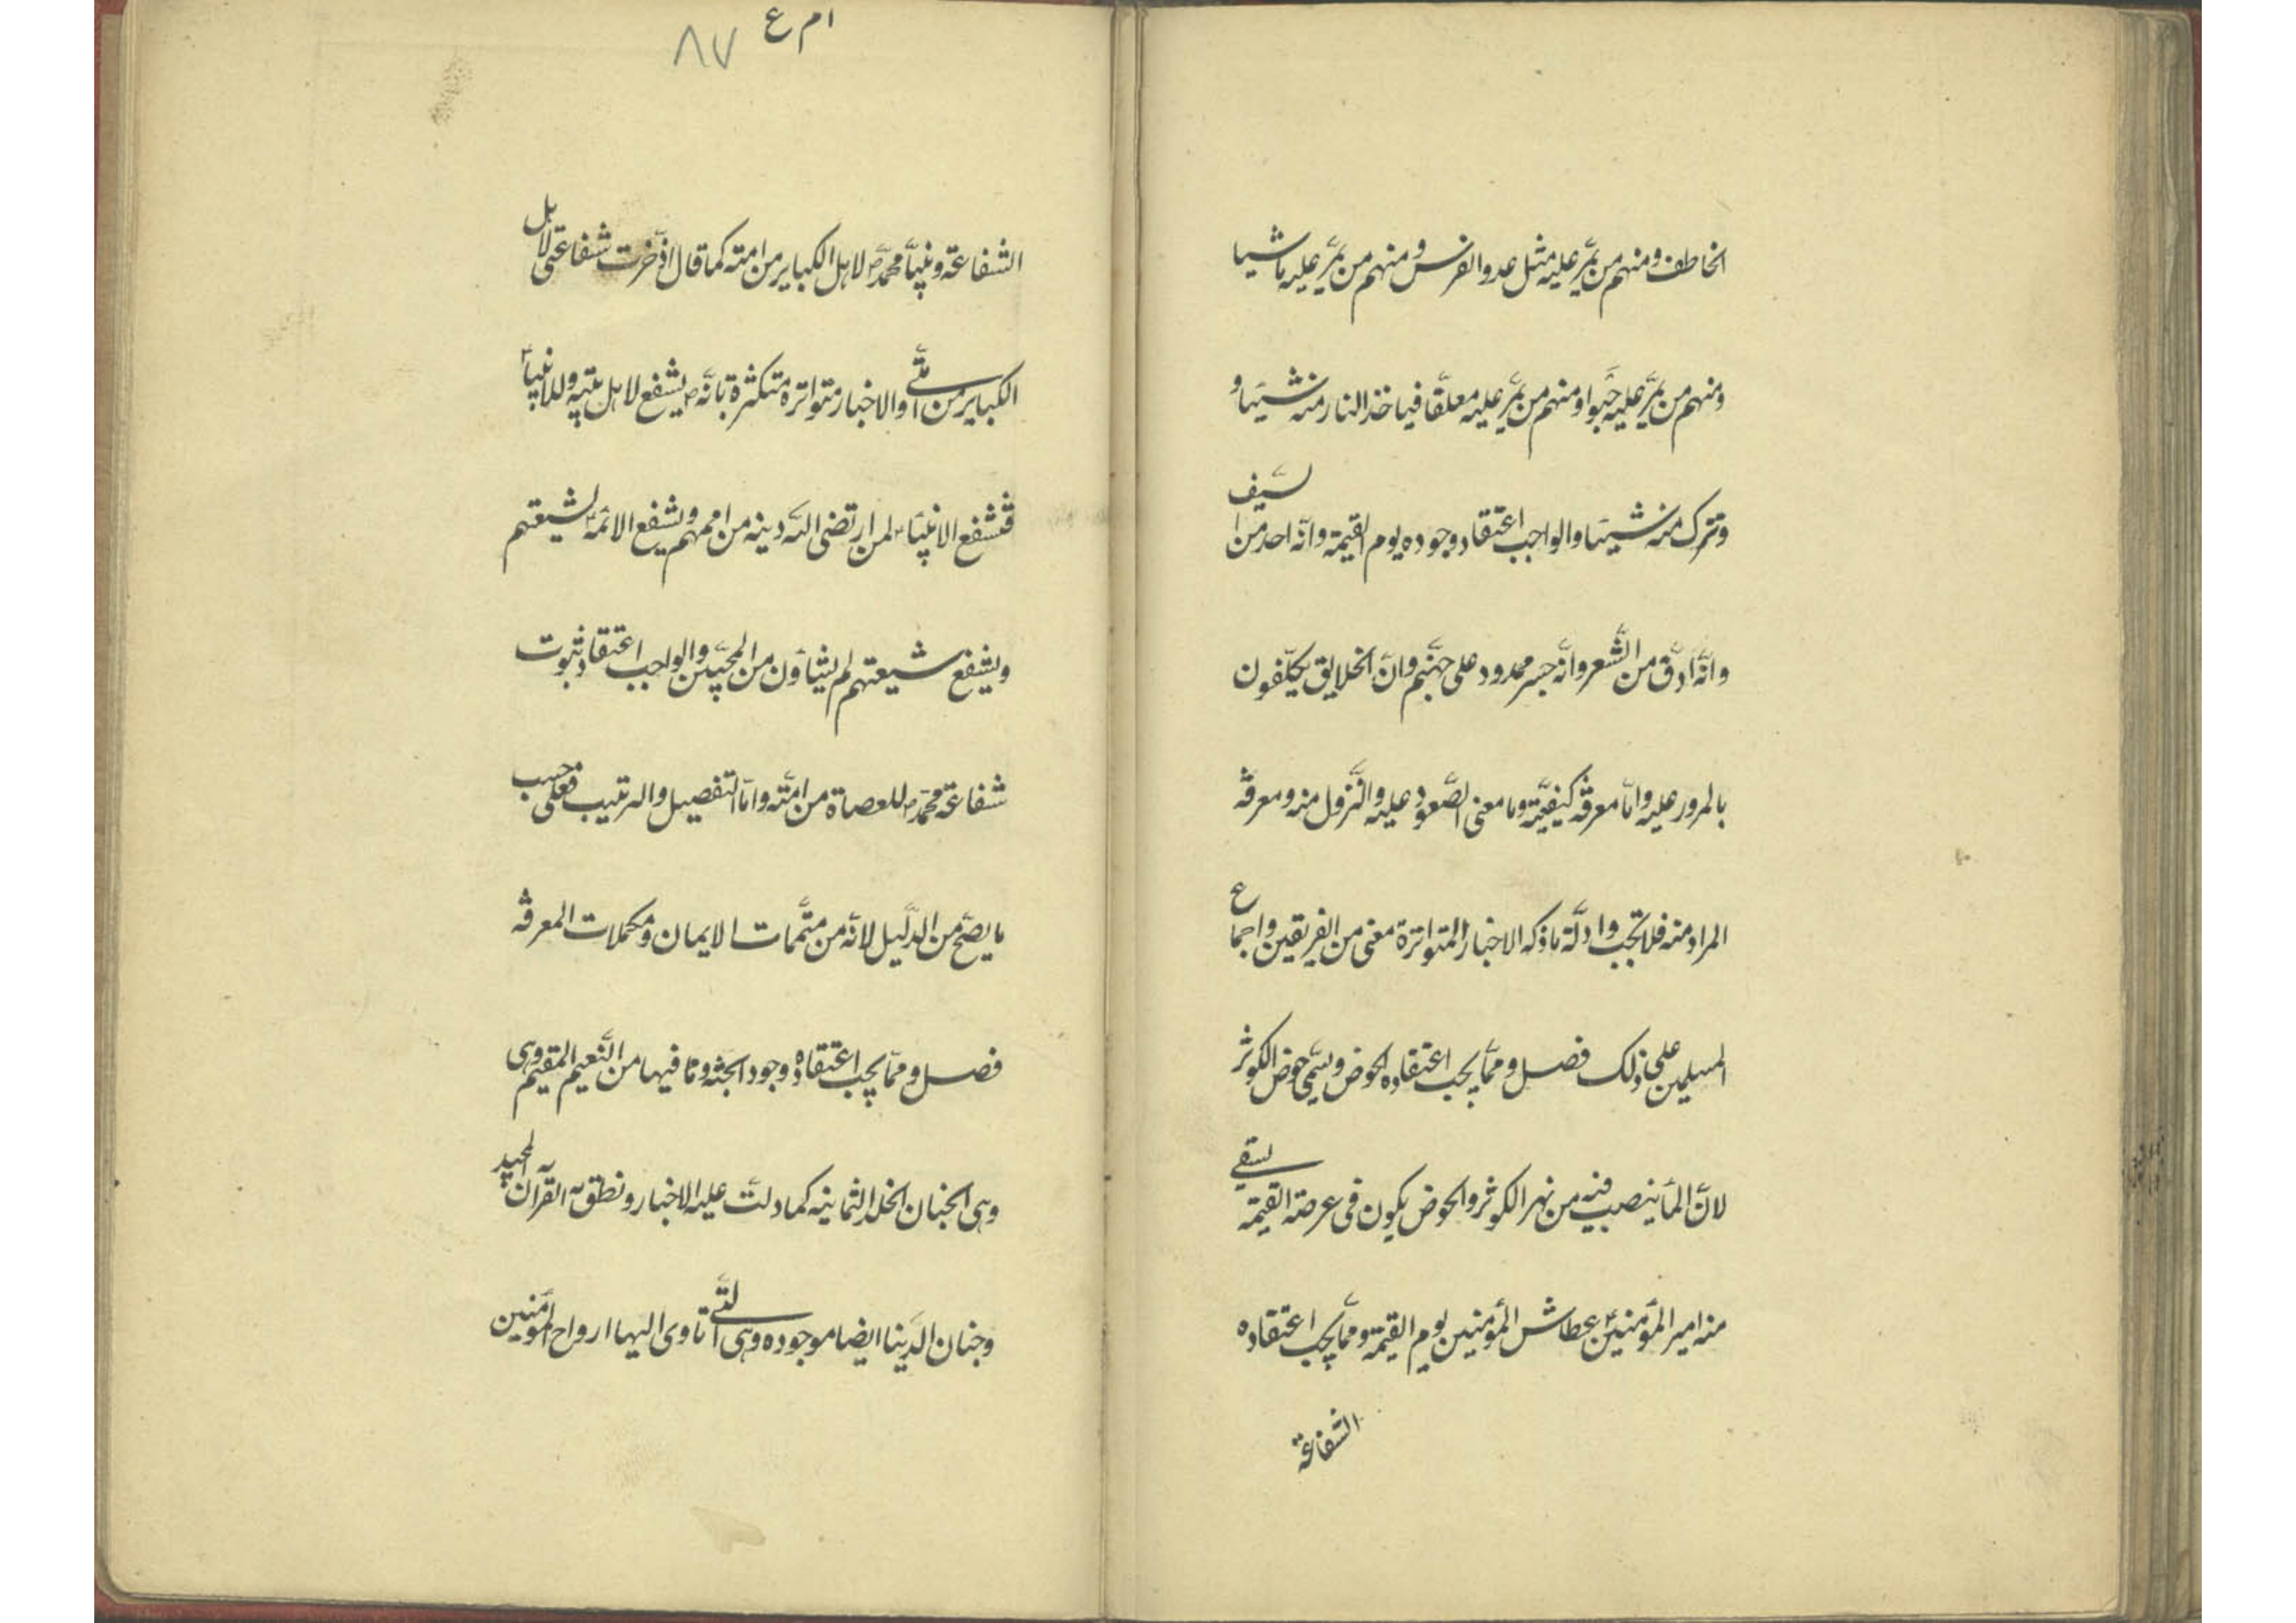 الخاطف ومنهم من يمّر عليه مثل عدو الفرس ومنهم من يمّر عليه ماشيا
ومنهم من يمّر عليه حَبوا ومنهم من يمّر عليه معلّقا فياخذ النار منه شيئا و
وتترك منه شيئا والواجب اعتقاد وجوده يوم القيمة وانّه احد من السّيف
وانّه ادّق من الشّعر وانّه جسر ممدود على جهنّم وانّ الخلايق يكلّفون
بالمرور عليه وامّا معرفة كيفيّته وما معنى الصّعود عليه والنّزول منه ومعرفة
المراد منه فلا تجب وادلّة ما ذكه الاخبار المتواترة معنى من الفريقين واجماع
المسلمين على ذلك فصل وممّا يجب اعتقاده الحوض ويسّمى حوض الكوثر
لانّ المأ ينصب فيه من نهر الكوثر والحوض يكون فى عرصة القيمة يسقي
منه امير المؤمنين ع عطاش المؤمنين يوم القيمة وممّا يجب اعتقاده
الشفاعة
ام ع
٨٧
الشفاعة ونبيّنا محمّد ص لاهل الكباير من امته كما قال ادّخرت شفاعتى لاهل
الكباير من امّتي والاخبار متواترة متكثرة بانّه ص يشفع لاهل بيته وللانبيآء
فتشفع الانبيآء لمن ارتضى اللّه دينه من اممهم ويشفع الائمّة لشيعتهم
ويشفع شيعتهم لم يشاؤن من المحبّين والواجب اعتقاد ثبوت
شفاعة محمّد ص للعصاة من امّته وامّا التفصيل والترتيب فعلى حسب
ما يصّح من الدّليل لانّه من متمّمات الايمان ومكملات المعرفة
فصل وممّا يجب اعتقاده وجود الجنّة وما فيها من النّعيم المقيم وهى
وهى الجنان الخلد الثمانيه كما دلّت عليه الاخبار ونطق به القرآن المجيد
وجنان الدّنيا ايضا موجوده وهى الّتي تاوى اليها ارواح المؤمنين